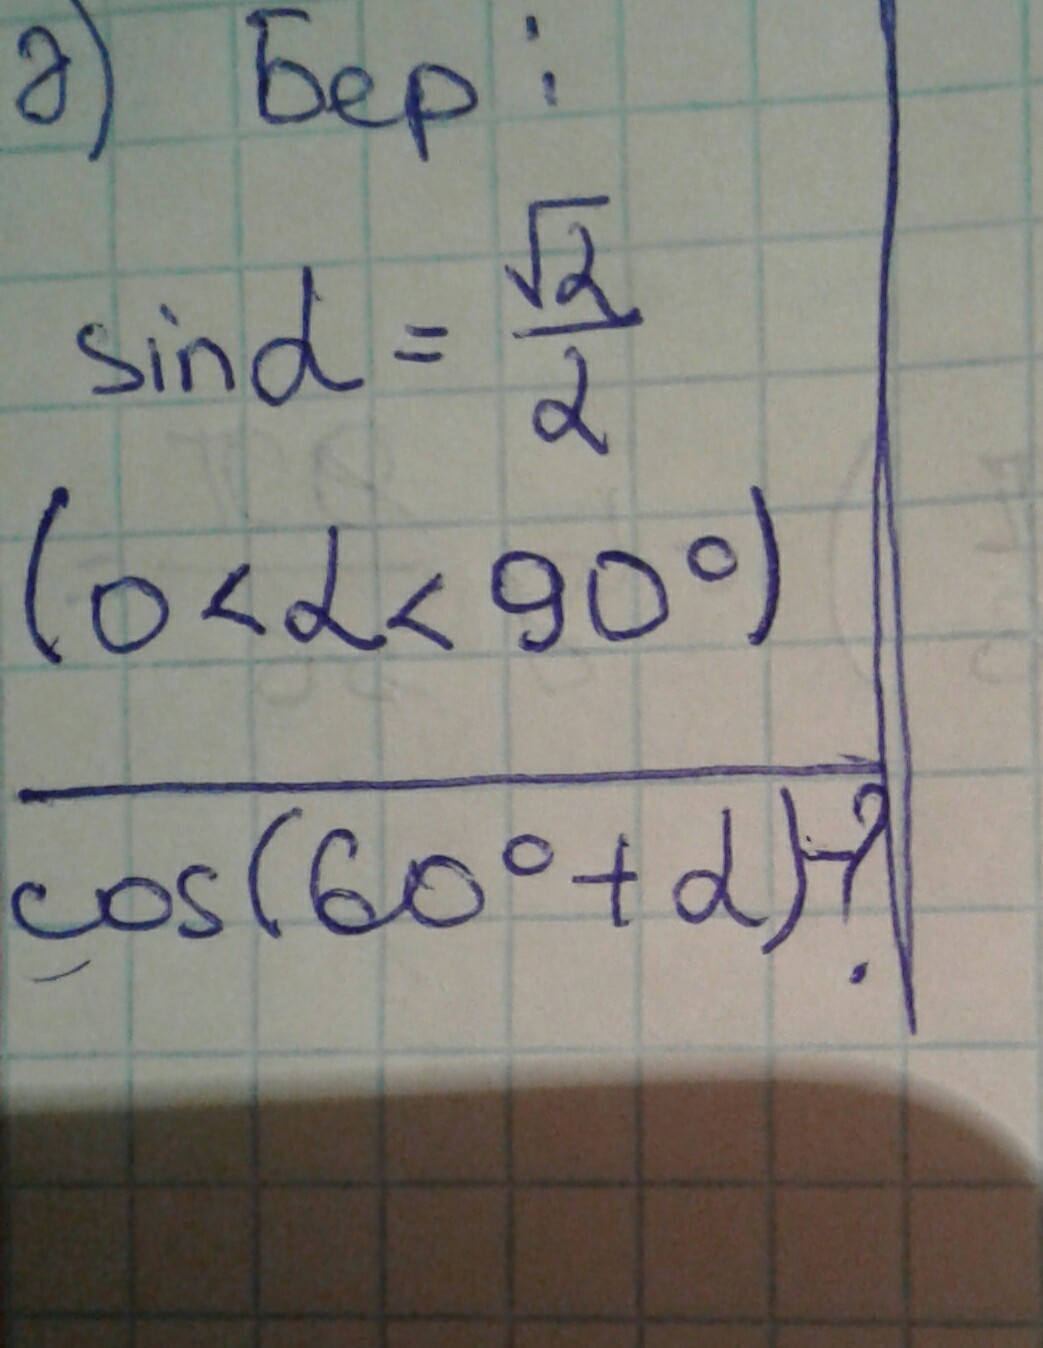 д) Бер:
sinα = √2/2
(0<α<90°)
cos(60°+α)-?